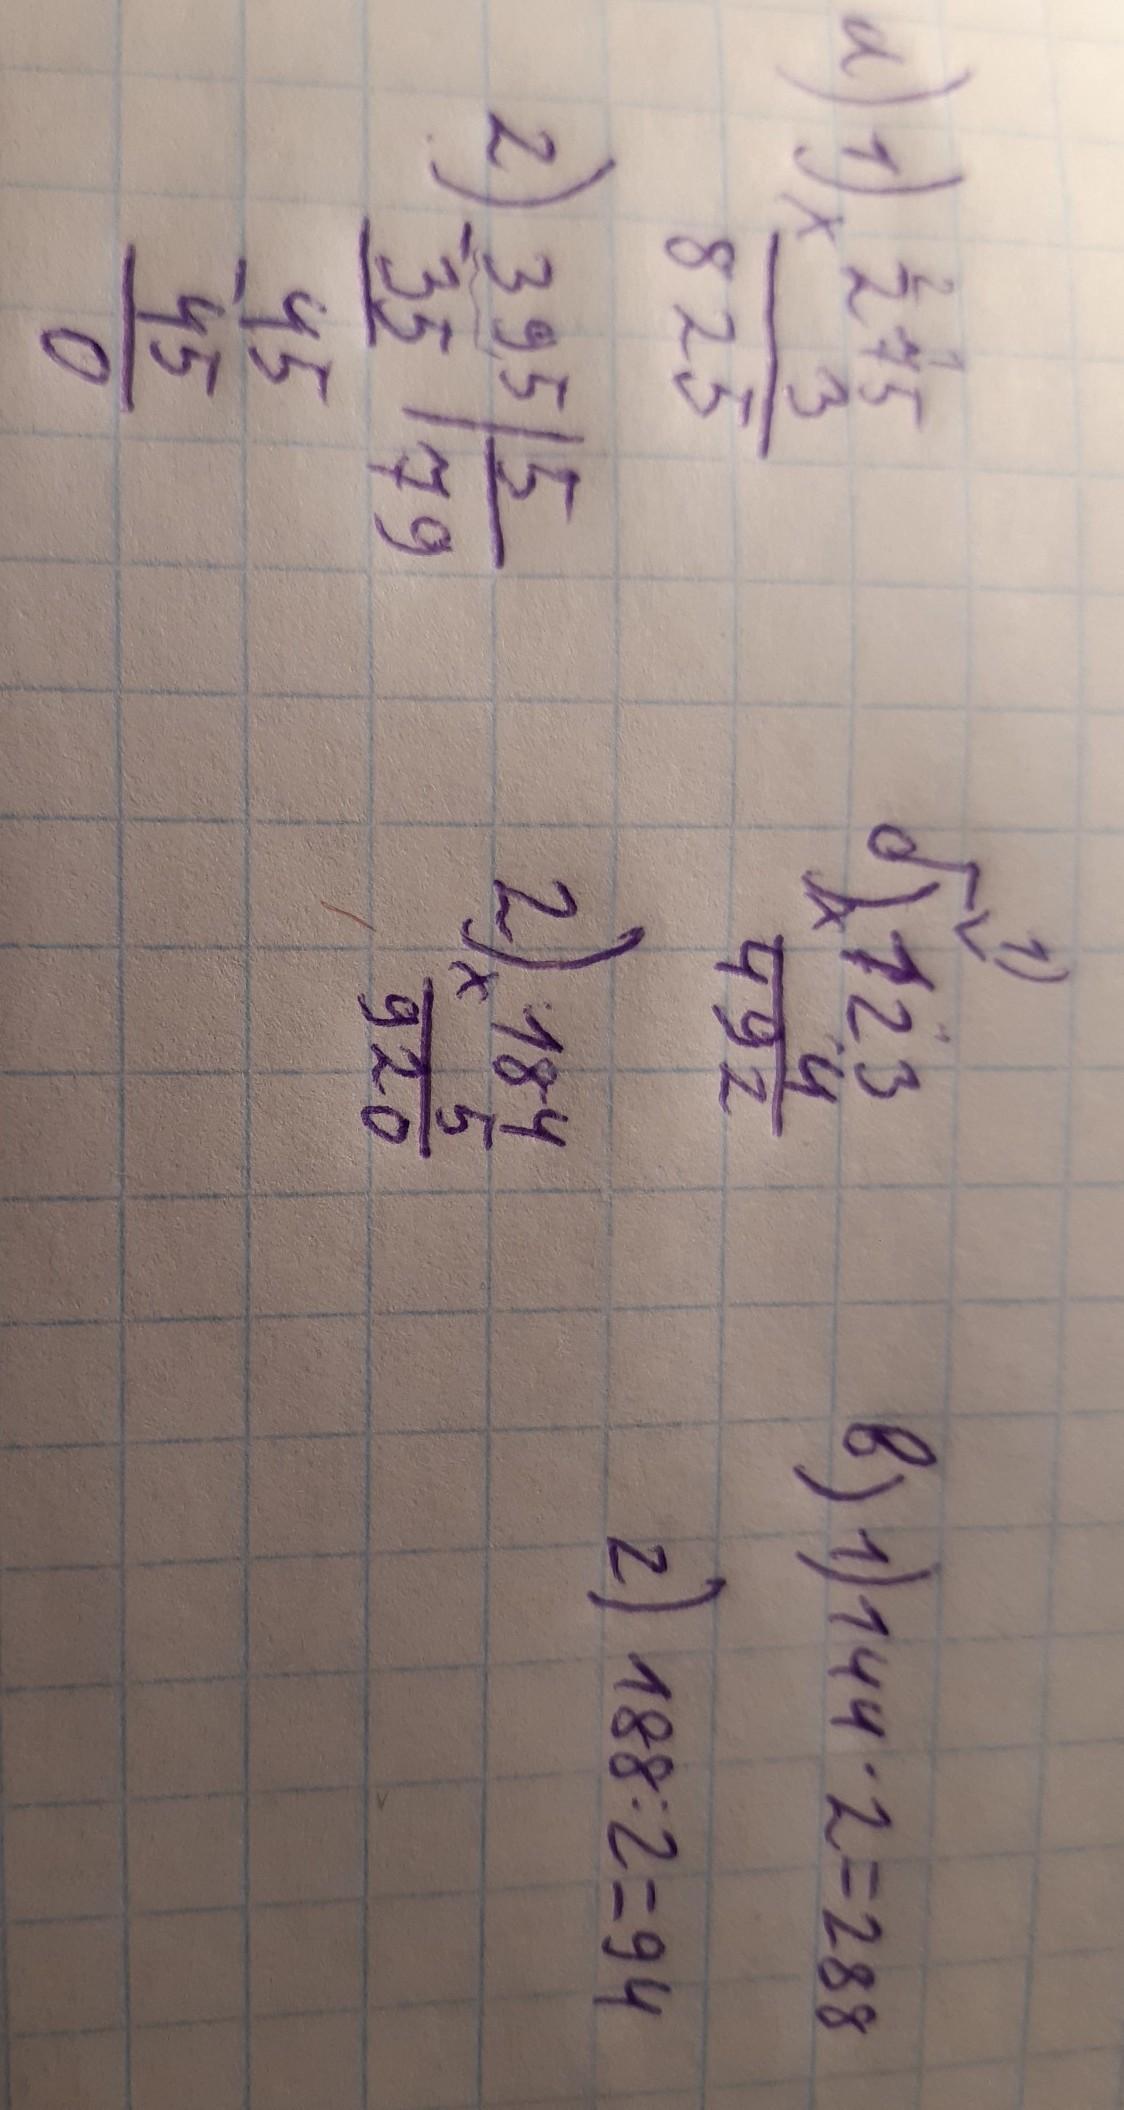 а) 1) 275
× 3
825
2) 395 | 5
- 35 | 79
- 45
45
0
б) 1) 123
× 4
492
2) 184
× 5
920
в) 1) 144 · 2 = 288
2) 188 : 2 = 94